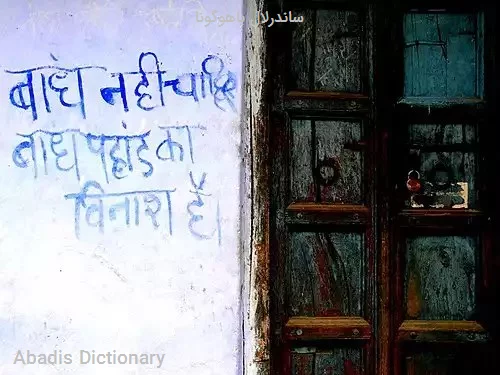 ساندرلال باهوگونا
बाधं नही चाहिए
बाध पहांड का
विनाश है।
Abadis Dictionary